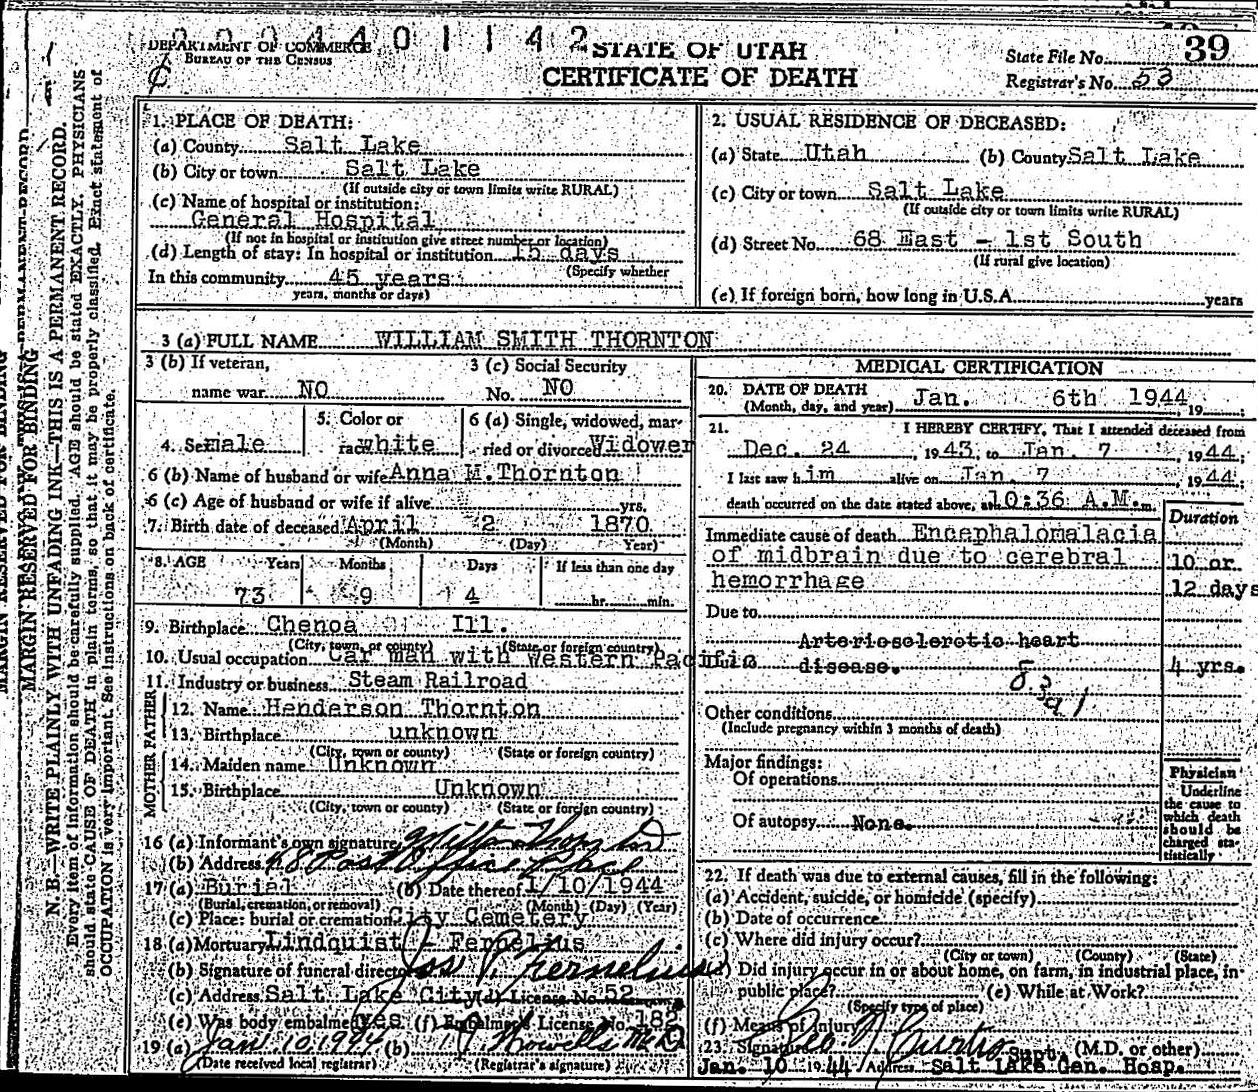 0004401142
DEPARTMENT OF COMMERCE
BUREAU OF THE CENSUS
STATE OF UTAH
CERTIFICATE OF DEATH
State File No. 39
Registrar's No. 53
MARGIN RESERVED FOR BINDING
N. B.—WRITE PLAINLY WITH UNFADING INK—THIS IS A PERMANENT RECORD.
Every item of information should be carefully supplied. AGE should be stated EXACTLY. PHYSICIANS
should state CAUSE OF DEATH in plain terms, so that it may be properly classified. Exact statement of
OCCUPATION is very important. See instructions on back of certificate.
1. PLACE OF DEATH:
(a) County Salt Lake
(b) City or town Salt Lake
(If outside city or town limits write RURAL)
(c) Name of hospital or institution:
General Hospital
(If not in hospital or institution give street number or location)
(d) Length of stay: In hospital or institution 15 days
(Specify whether
In this community 45 years
years, months or days)
2. USUAL RESIDENCE OF DECEASED:
(a) State Utah (b) County Salt Lake
(c) City or town Salt Lake
(If outside city or town limits write RURAL)
(d) Street No. 68 East - 1st South
(If rural give location)
(e) If foreign born, how long in U.S.A. years
3 (a) FULL NAME WILLIAM SMITH THORNTON
3 (b) If veteran,
name war NO
3 (c) Social Security
No. NO
4. Sex male
5. Color or
race white
6 (a) Single, widowed, mar-
ried or divorced Widower
6 (b) Name of husband or wife Anna M. Thornton
6 (c) Age of husband or wife if alive yrs.
7. Birth date of deceased April 2 1870
(Month) (Day) Year)
8. AGE Years Months Days If less than one day
73 9 4 hr. min.
9. Birthplace Chenoa Ill.
(City, town, or county) (State or foreign country)
10. Usual occupation Car man with Western Pacific
11. Industry or business Steam Railroad
FATHER
12. Name Henderson Thornton
13. Birthplace unknown
(City, town or county) (State or foreign country)
MOTHER
14. Maiden name Unknown
15. Birthplace Unknown
(City, town or county) (State or foreign country)
16 (a) Informant's own signature Milton Thornton
(b) Address 68 Post Office Place
17 (a) Burial (b) Date thereof 1/10/1944
(Burial, cremation, or removal) (Month) (Day) (Year)
(c) Place: burial or cremation City Cemetery
18 (a) Mortuary Lindquist - Fernelius
(b) Signature of funeral director Jos P. Fernelius
(c) Address Salt Lake City (d) License No. 52
(e) Was body embalmed Yes (f) Embalmers License No. 182
19 (a) Jan 10 1944 (b) Howells M.D.
(Date received local registrar) (Registrar's signature)
MEDICAL CERTIFICATION
20. DATE OF DEATH
(Month, day, and year) Jan. 6th 1944, 19
21. I HEREBY CERTIFY, That I attended deceased from
Dec. 24, 1943, to Jan. 7, 1944.
I last saw him alive on Jan. 7, 1944.
death occurred on the date stated above, at 10:36 A.M. m.
Duration
Immediate cause of death Encephalomalacia
of midbrain due to cerebral
hemorrhage
10 or
12 days
Due to
Arteriosclerotic heart
Due to disease.
4 yrs.
83a 1
Other conditions
(Include pregnancy within 3 months of death)
Major findings:
Of operations
Of autopsy None.
Physician
Underline
the cause to
which death
should be
charged sta-
tistically
22. If death was due to external causes, fill in the following:
(a) Accident, suicide, or homicide (specify)
(b) Date of occurrence
(c) Where did injury occur?
(City or town) (County) (State)
Did injury occur in or about home, on farm, in industrial place, in
public place? (e) While at Work?
(Specify type of place)
(f) Means of Injury
23 Signature Geo N Curtis Supt. (M.D. or other)
Jan. 10 1944 Address Salt Lake Gen. Hosp.